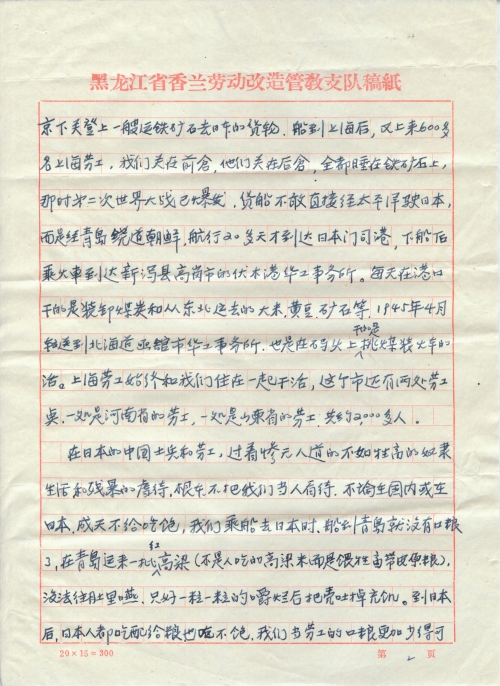 黑龙江省香兰劳动改造管教支队稿纸
京下关登上一艘运铁矿石去日本的货物．船到上海后，又上来600多
名上海劳工，我们关在前仓，他们关在后仓，全部睡在铁矿石上，
那时第二次世界大战已爆发．货船不敢直接经太平洋驶日本，
而是经青岛绕道朝鲜，航行20多天才到达日本门司港，下船后
乘火車到达新泻县高岗市的伏木港华工事务所。每天在港口
干的是装卸煤类和从东北运去的大米．黄豆 矿石等．1945年4月
转送到北海道函馆市华工事务所．也是在码头上干的是挑煤装火车的
活。上海劳工始终和我们住在一起干活，这个市还有两处劳工
一处是河南省的劳工，一处是山東省的劳工．共约2,000多人．
在日本的中国士兵和劳工，过着惨无人道的不如牲畜的奴隶
生活和残暴的虐待，根本不把我们当人看待．不论在国内或在
日本．成天不给吃饱，我们乘船去日本时．船到青岛就没有口粮
了，在青岛运来一批红高梁（不是人吃的高梁米而是喂牲畜带皮原粮），
没法往肚里咽．只好一粒一粒的嚼烂后把壳吐掉充饥。到日本
后，日本人都吃配给粮也吃不饱．我们当劳工的口粮更加少得可
20×15＝300
第 2 页